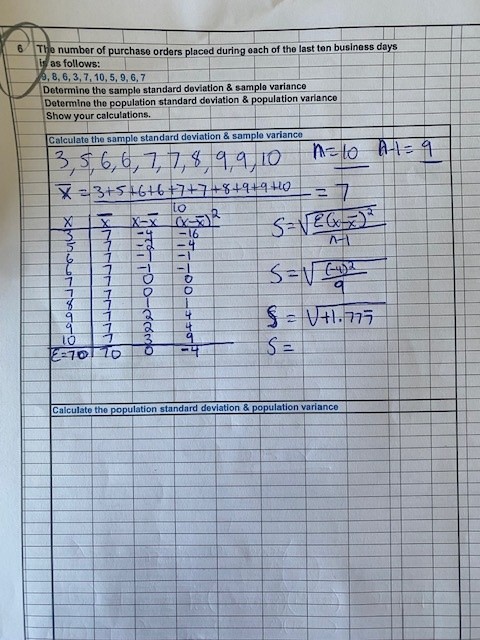 6 The number of purchase orders placed during each of the last ten business days
is as follows:
9, 8, 6, 3, 7, 10, 5, 9, 6, 7
Determine the sample standard deviation & sample variance
Determine the population standard deviation & population variance
Show your calculations.
Calculate the sample standard deviation & sample variance
3, 5, 6, 6, 7, 7, 8, 9, 9, 10 n=10 n-1=9
x̄ = 3+5+6+6+7+7+8+9+9+10 = 7
10
x x̄ x-x̄ (x-x̄)²
3 7 -4 -16
5 7 -2 -4
6 7 -1 -1
6 7 -1 -1
7 7 0 0
7 7 0 0
8 7 1 1
9 7 2 4
9 7 2 4
10 7 3 9
Σ=70 70 0 -4
S=√Σ(x-x̄)²
n-1
S=√(-4)²
9
S=√+1.777
S=
Calculate the population standard deviation & population variance